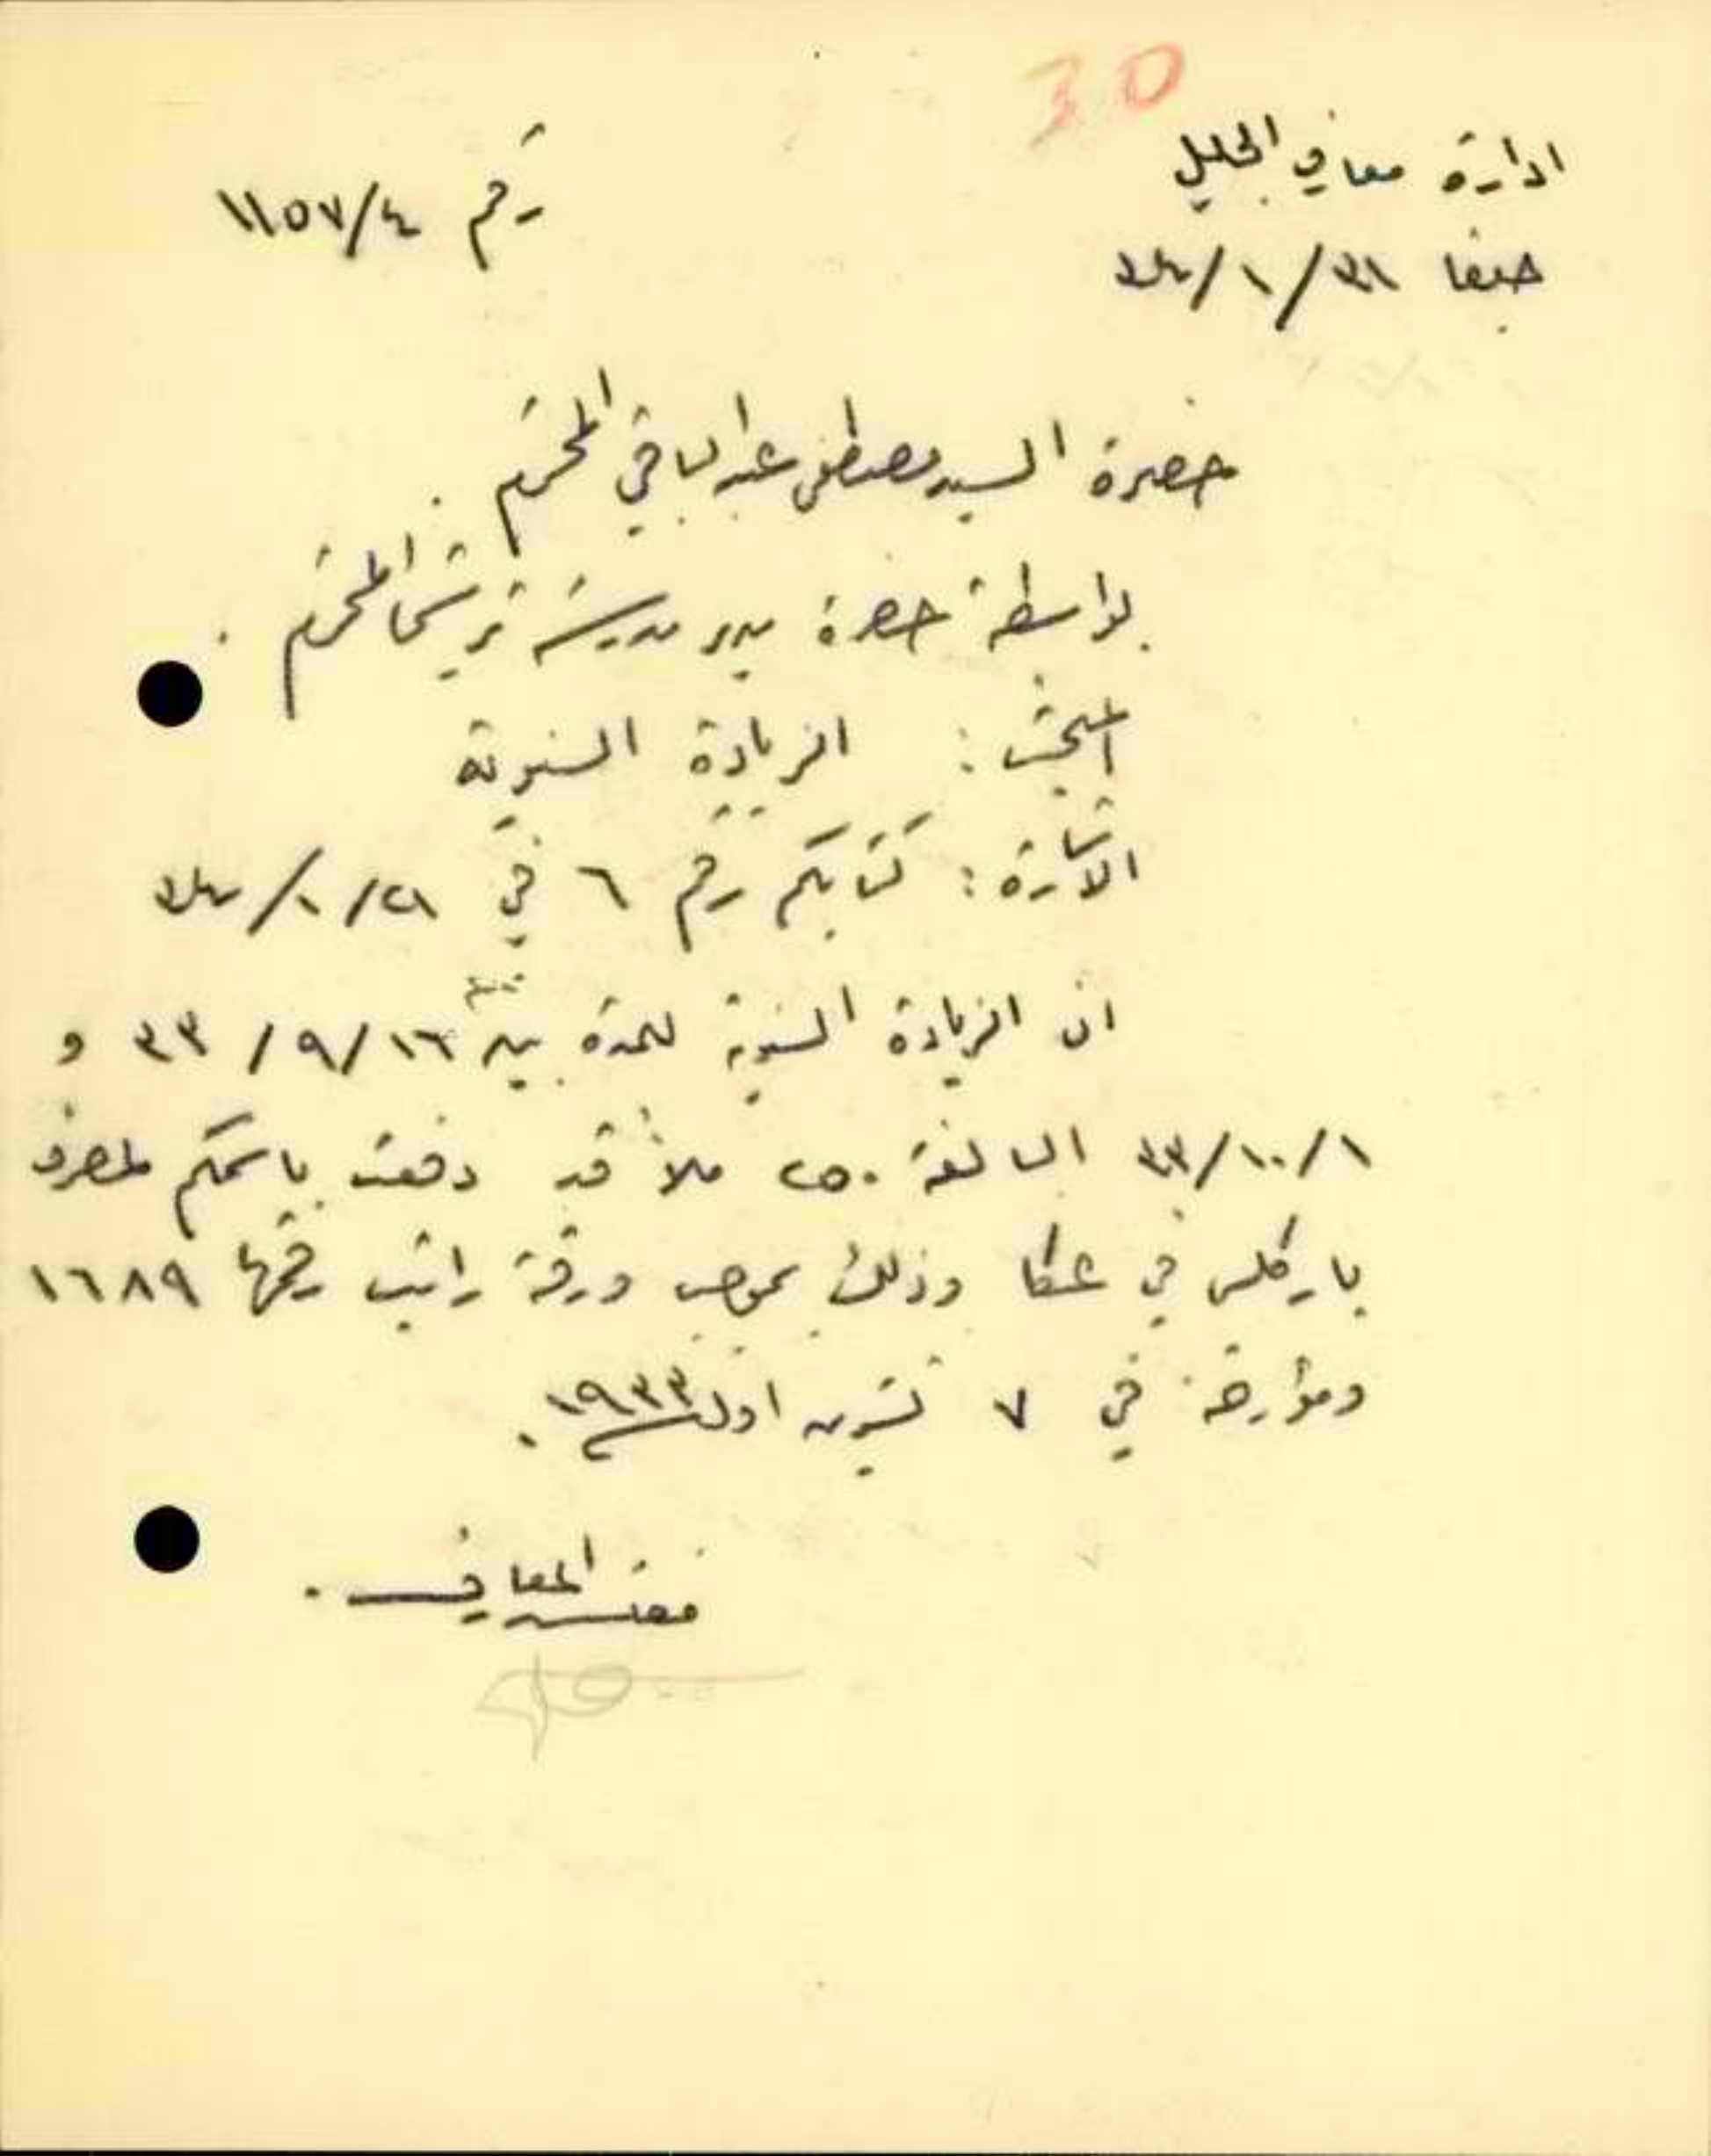 30
ادارة معارف الجليل
رقم ١١٥٧/٤
حيفا ٣١/١/٣٤
حضرة السيد مصطفى عبد الباقي المحترم .
بواسطة حضرة مدير مدرسة ترشيحا المحترم .
المبحث : الزيادة السنوية
الاشارة : كتابكم رقم ٦ في ٢١/١/٣٤
ان الزيادة السنوية للمدة بين ١٦/٩/٣٣ و
١/١٠/٣٣ البالغة ٢٥٠ ملاً قد دفعت باسمكم لمصرف
باركلس في عكا وذلك بموجب ورقة راتب رقمها ١٦٨٩
ومؤرخة في ٧ تشرين اول ١٩٣٣ .
مفتش المعارف .